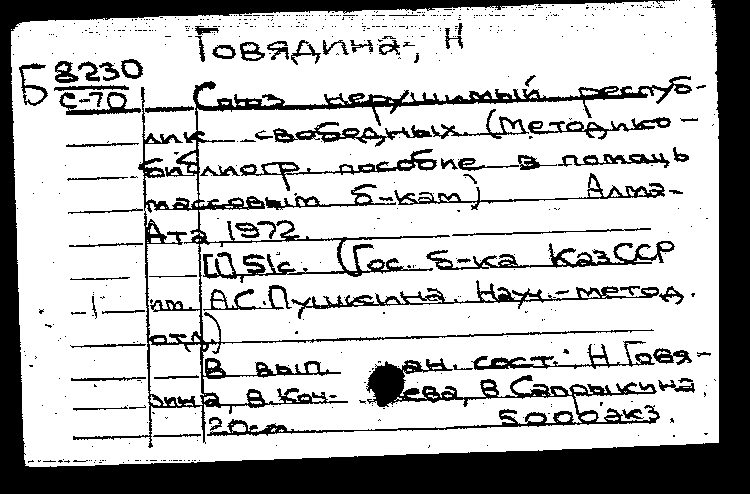 Говядина, Н
Б 8230
С-70
Союз нерушимый респуб-
лик свободных. (Методико-
библиогр. пособие в помощь
массовым б-кам) Алма-
Ата, 1972.
[1], 51с. (Гос. б-ка КазССР
им. А.С.Пушкина. Науч.-метод.
отд.)
В вып. сост.: Н.Говя-
дина, В. В.Сапрыкина.
20см. 5000экз.